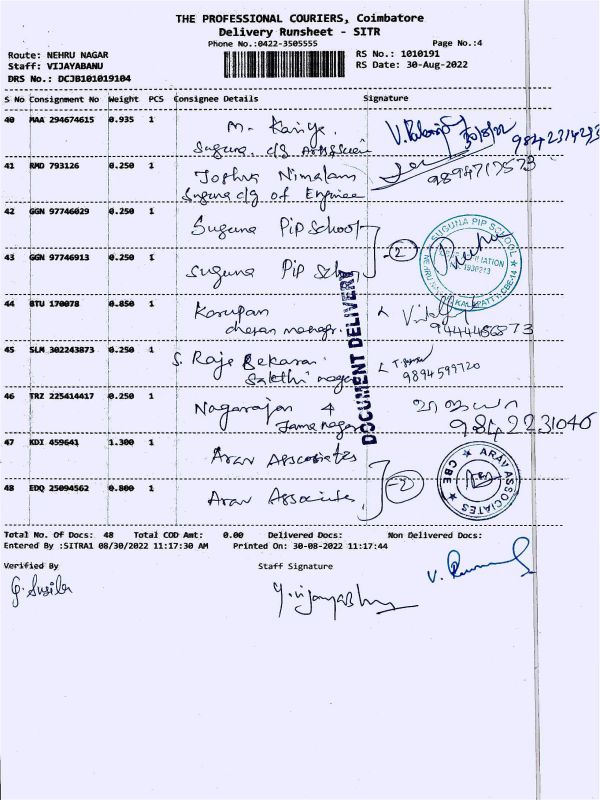 THE PROFESSIONAL COURIERS, Coimbatore
Delivery Runsheet - SITR
Phone No.:0422-3505555 Page No.:4
Route: NEHRU NAGAR RS No.: 1010191
Staff: VIJAYABANU RS Date: 30-Aug-2022
DRS No.: DCJB101019104
S No Consignment No Weight PCS Consignee Details Signature
40 MAA 294674615 0.935 1 M. Kaniya
Suguna clg 30/8/22 9842314293
41 RMD 793126 0.250 1 Joshua Nimalam
Suguna clg of Enginee 9894717573
42 GGN 97746029 0.250 1 Suguna Pip School
2
43 GGN 97746913 0.250 1 Suguna Pip Scho
SUGUNA PIP SCHOOL
1930213
NEHRU NAGAR KALAPATTI, CBE-14
44 BTU 170078 0.850 1 Karupan
cheran managr. 9444486573
45 SLM 302243873 0.250 1 S. Raja Sekaran
Sakthi nagar 9894599720
46 TRZ 225414417 0.250 1 Nagarajan 4
Jamanagar 9842231046
47 KDI 459641 1.300 1 Arav Associates
2
48 EDQ 25094562 0.800 1 Arav Associates
ARAV ASSOCIATES
CBE
DOCUMENT DELIVERY
Total No. Of Docs: 48 Total COD Amt: 0.00 Delivered Docs: Non Delivered Docs:
Entered By :SITRA1 08/30/2022 11:17:30 AM Printed On: 30-08-2022 11:17:44
Verified By Staff Signature
G. Susila